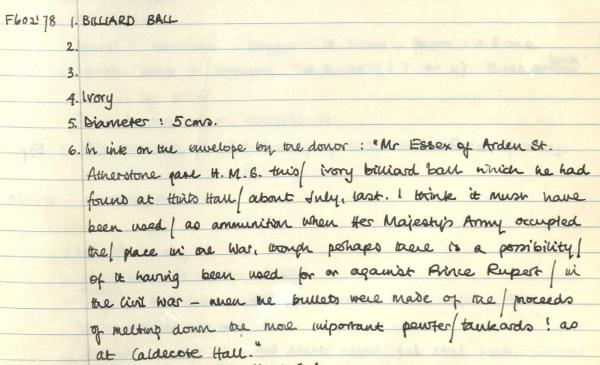 F602'78 1. BILLIARD BALL
2.
3.
4. Ivory
5. Diameter : 5cms.
6. In ink on the envelope by the donor : "Mr Essex of Arden St.
Atherstone gave H.M.S. this/ ivory billiard ball which he had
found at Hall/ about July, last. I think it must have
been used/ as ammunition when Her Majesty's Army occupied
the/ place in one War, though perhaps there is a possibility/
of it having been used for or against Prince Rupert/ in
the Civil War – when the bullets were made of the/ proceeds
of melting down the more important pewter/ tankards! as
at Caldecote Hall."